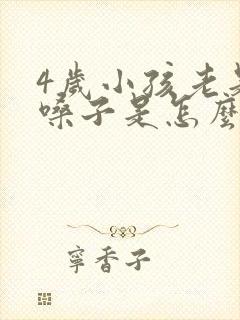 4歲小孩老是
嗓子是怎麼
寧香子